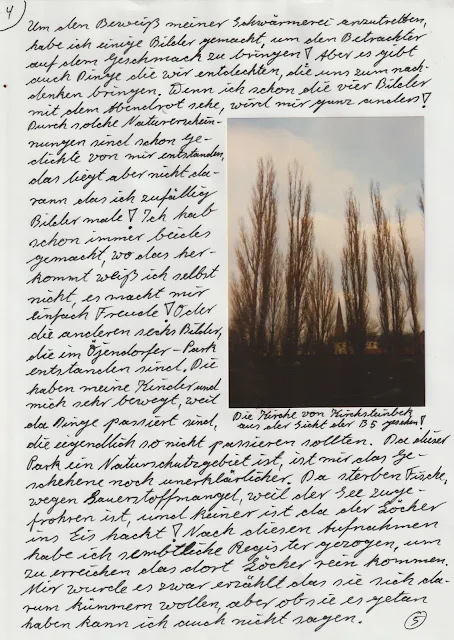 4
Um den Beweiß meiner Schwärmerei anzutretten,
habe ich einige Bilder gemacht, um den Betrachter
auf dem Geschmack zu bringen! Aber es gibt
auch Dinge die wir entdeckten, die uns zum nach-
denken bringen. Wenn ich schon die vier Bilder
mit dem Abendrot sehe, wird mir ganz anders!
Durch solche Naturerschein-
nungen sind schon Ge-
dichte von mir entstanden,
das liegt aber nicht da-
rann das ich zufällig
Bilder male! Ich hab
schon immer beides
gemacht, wo das her-
kommt weiß ich selbst
nicht, es macht mir
einfach Freude! Oder
die anderen sechs Bilder,
die im Öjendorfer-Park
entstanden sind. Die
haben meine Kinder und
mich sehr bewegt, weil
da Dinge passiert sind,
Die Kirche von Kirchsteinbek
aus der Sicht der B5 gesehen!
die eigendlich so nicht passieren sollten. Da dieser
Park ein Naturschutzgebiet ist, ist mir das Ge-
schehene noch unerklärlicher. Da sterben Fische,
wegen Sauerstoffmangel, weil der See zuge-
frohren ist, und keiner ist da der Löcher
ins Eis hackt! Nach diesen Aufnahmen
habe ich sembtliche Register gezogen, um
zu erreichen das dort Löcher rein kommen.
Mir wurde es zwar erzählt das sie sich da-
rum kümmern wollen, aber ob sie es getan
haben kann ich auch nicht sagen.
5